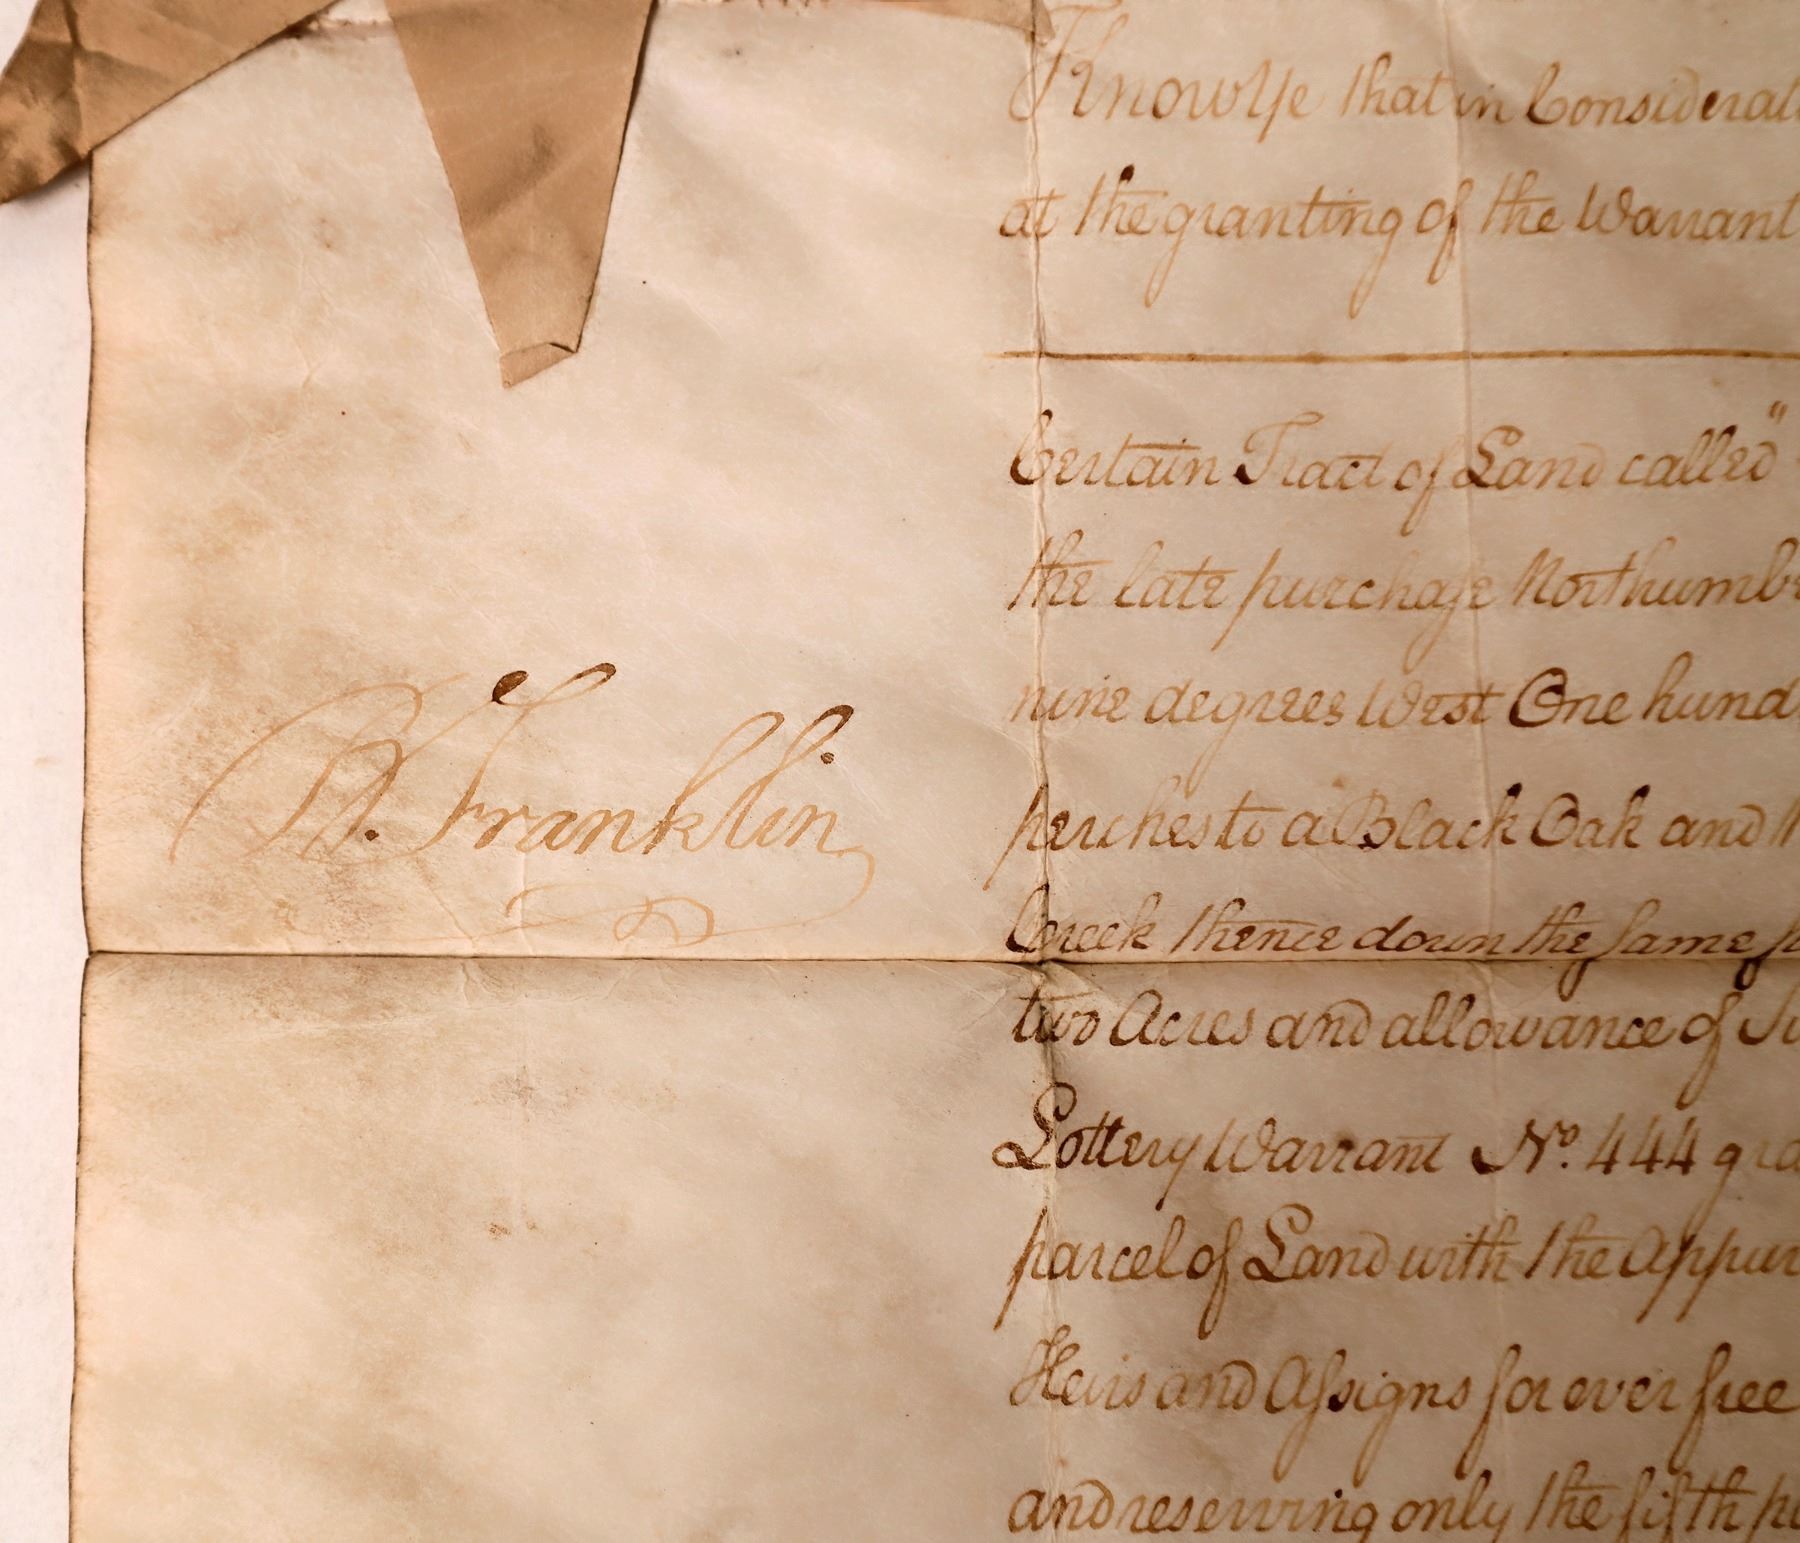 Know Ye that in Considerat
at the granting of the Warrant
Certain Tract of Land called "
the late purchase Northumbe
nine degrees West One hund
B. Franklin
perches to a Black Oak and
Creek thence down the same
two Acres and allowance of
Lottery Warrant No. 444 gra
parcel of Land with the Appur
Heirs and Assigns for ever free
and reserving only the fifth p